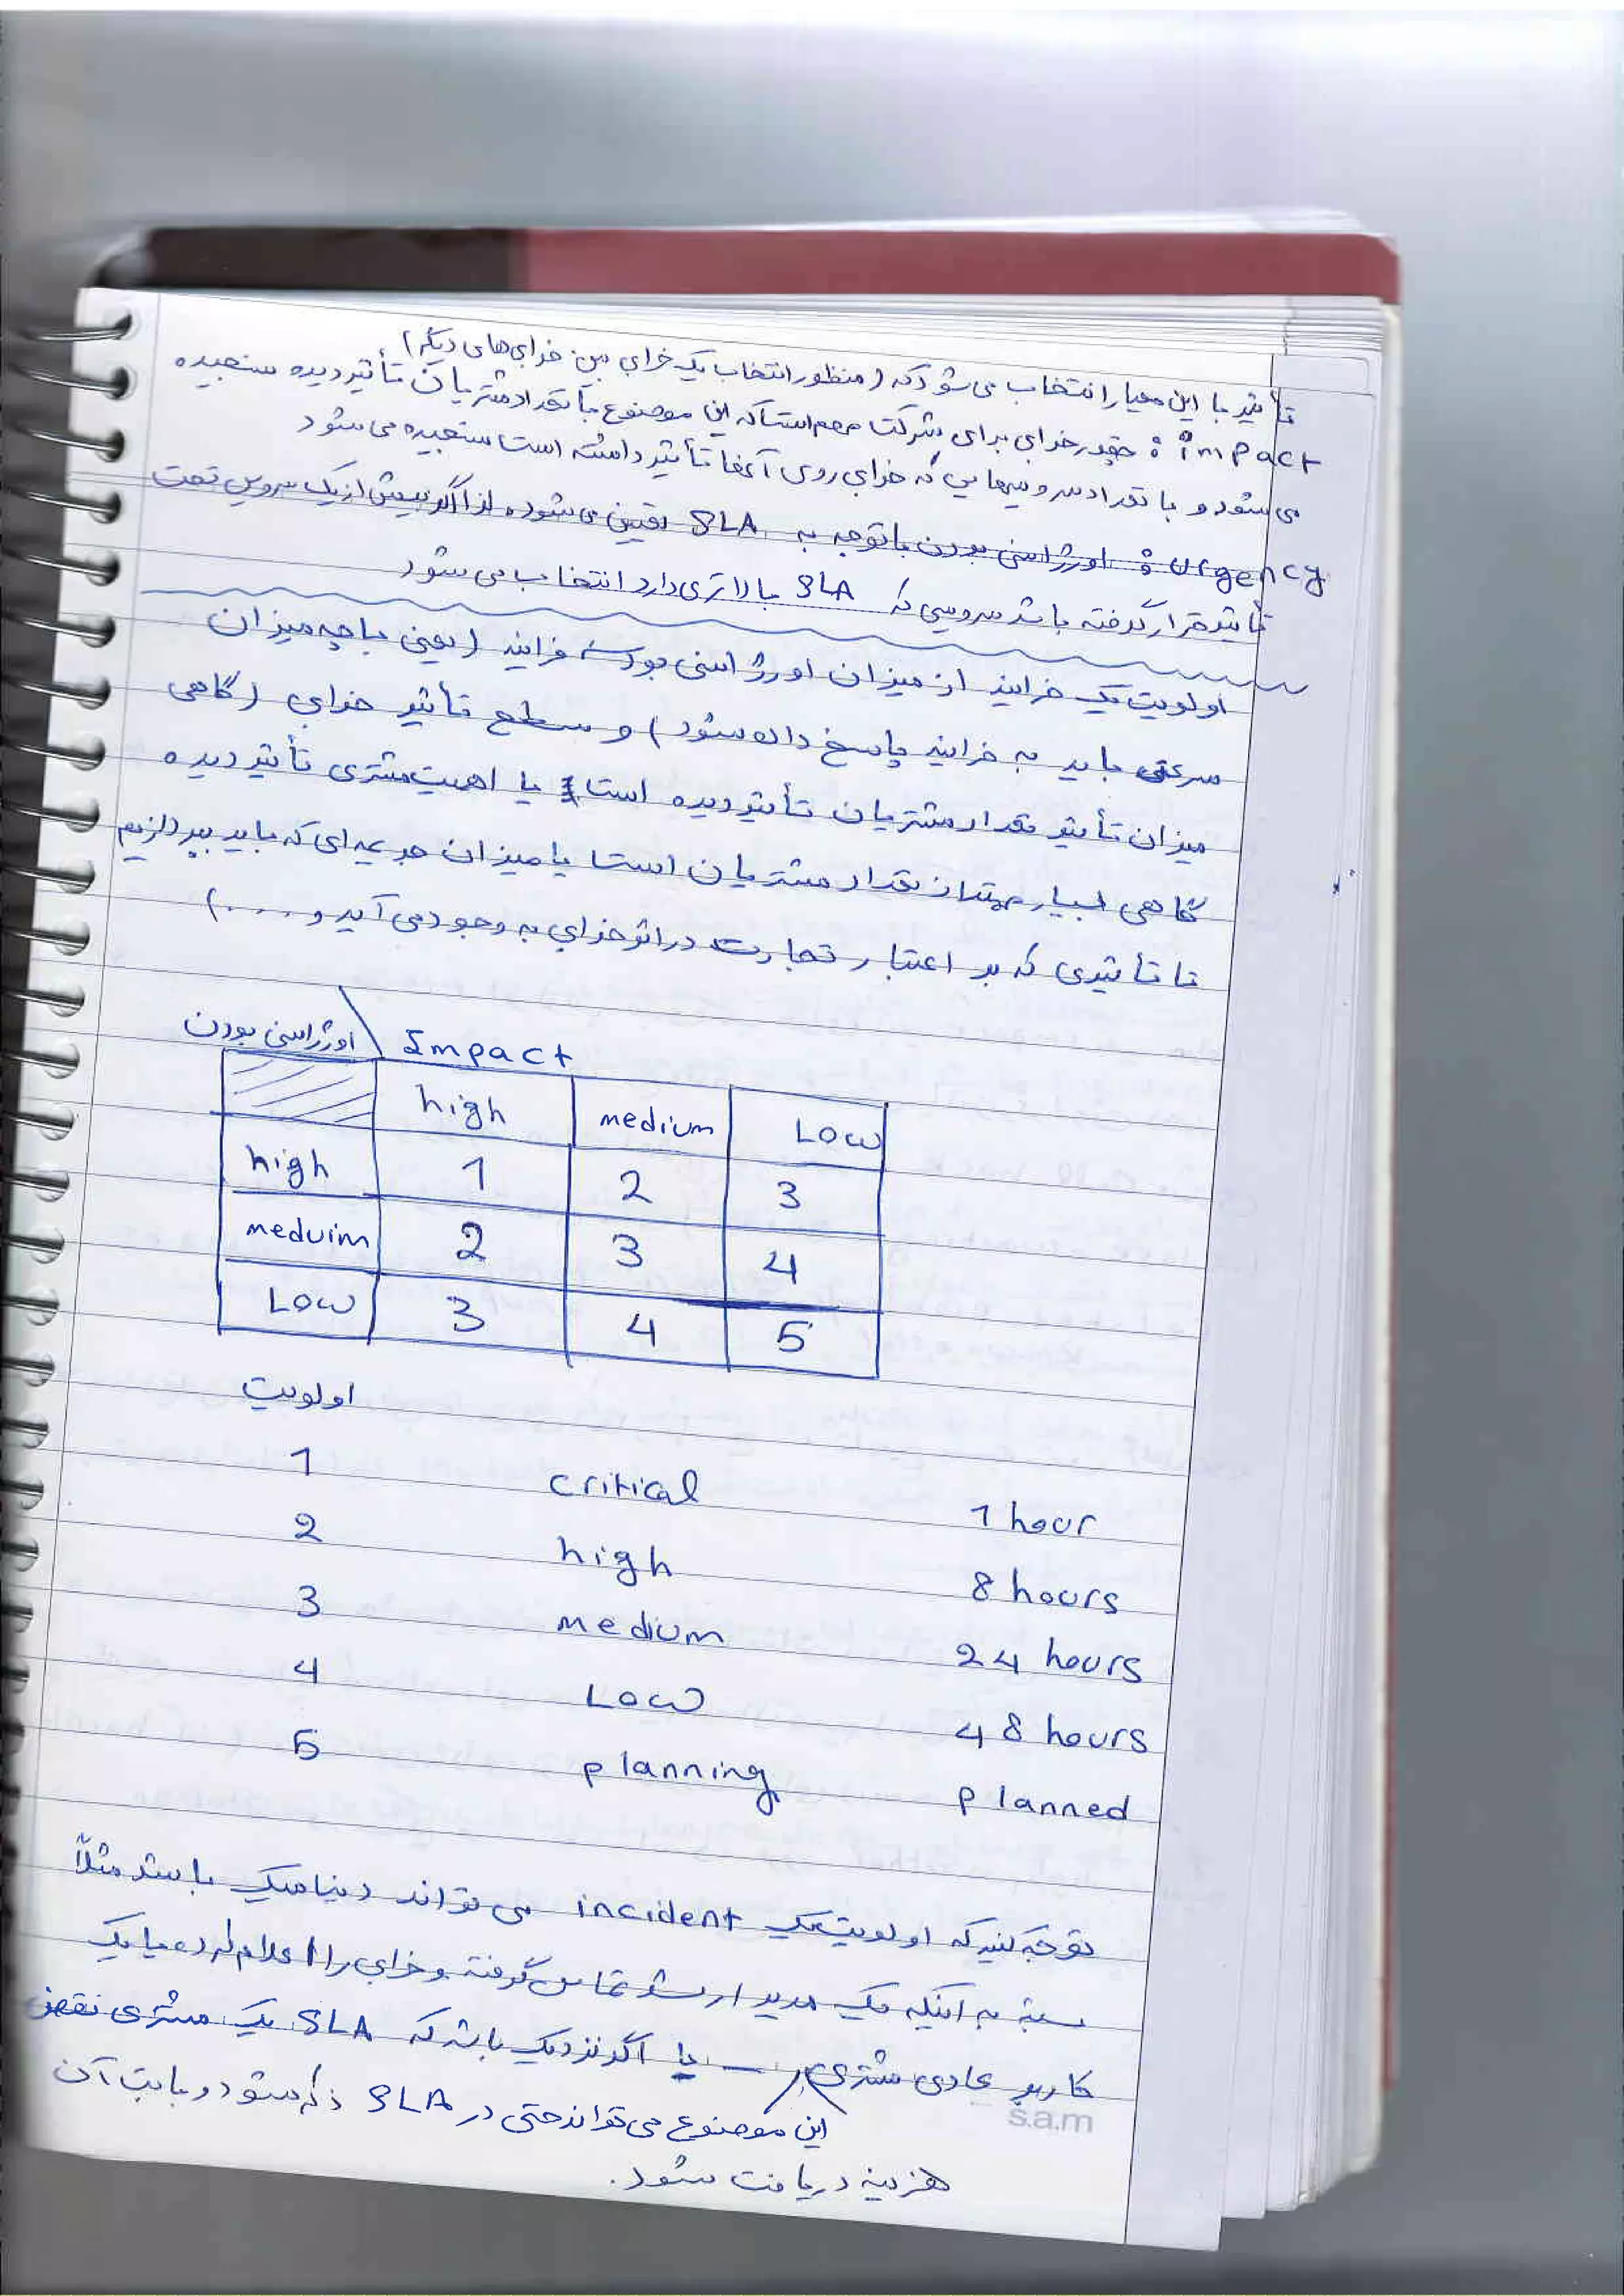 تأثیر با این معیار انتخاب می‌شود که (منظور انتخاب یک خرابی بین خرابی‌های دیگر)
impact : چقدر خرابی برای شرکت مهم است که این موضوع با تعداد مشتریان تأثیر دیده سنجیده
می‌شود و با تعداد سرویسهایی که خرابی روی آنها تأثیر داشته است سنجیده می‌شود
urgency : اورژانسی بودن با توجه به SLA تعیین می‌شود. لذا اگر بیش از یک سرویس تحت
تأثیر قرار گرفته باشد سرویسی که SLA بالاتری دارد انتخاب می‌شود
اولویت یک فرایند از میزان اورژانسی بودن فرایند (یعنی با چه میزان
سرعتی باید به فرایند پاسخ داده شود) و سطح تأثیر خرابی (گاهی
میزان تأثیر تعداد مشتریان تأثیر دیده است یا اهمیت مشتری تأثیر دیده
گاهی بسیار مهمتر از تعداد مشتریان است یا میزان جریمه‌ای که باید بپردازیم
تا تأثیری که بر اعتبار تجارت در اثر خرابی به وجود می‌آید و ....)
اورژانسی بودن \ Impact
high medium Low
high 1 2 3
meduim 2 3 4
Low 3 4 5
اولویت
1 critical 1 hour
2 high 8 hours
3 medium 24 hours
4 Low 48 hours
5 planning planned
توجه کنید که اولویت یک incident می‌تواند دینامیک باشد مثلاً
بسته به اینکه یک مدیر ارشد تماس گرفته و خرابی را اعلام کرده یا یک
کاربر عادی مشتری یا اگر نزدیک باشد که SLA یک مشتری نقض
این موضوع می‌تواند حتی در SLA ذکر شود و بابت آن
هزینه دریافت شود.
s.a.m